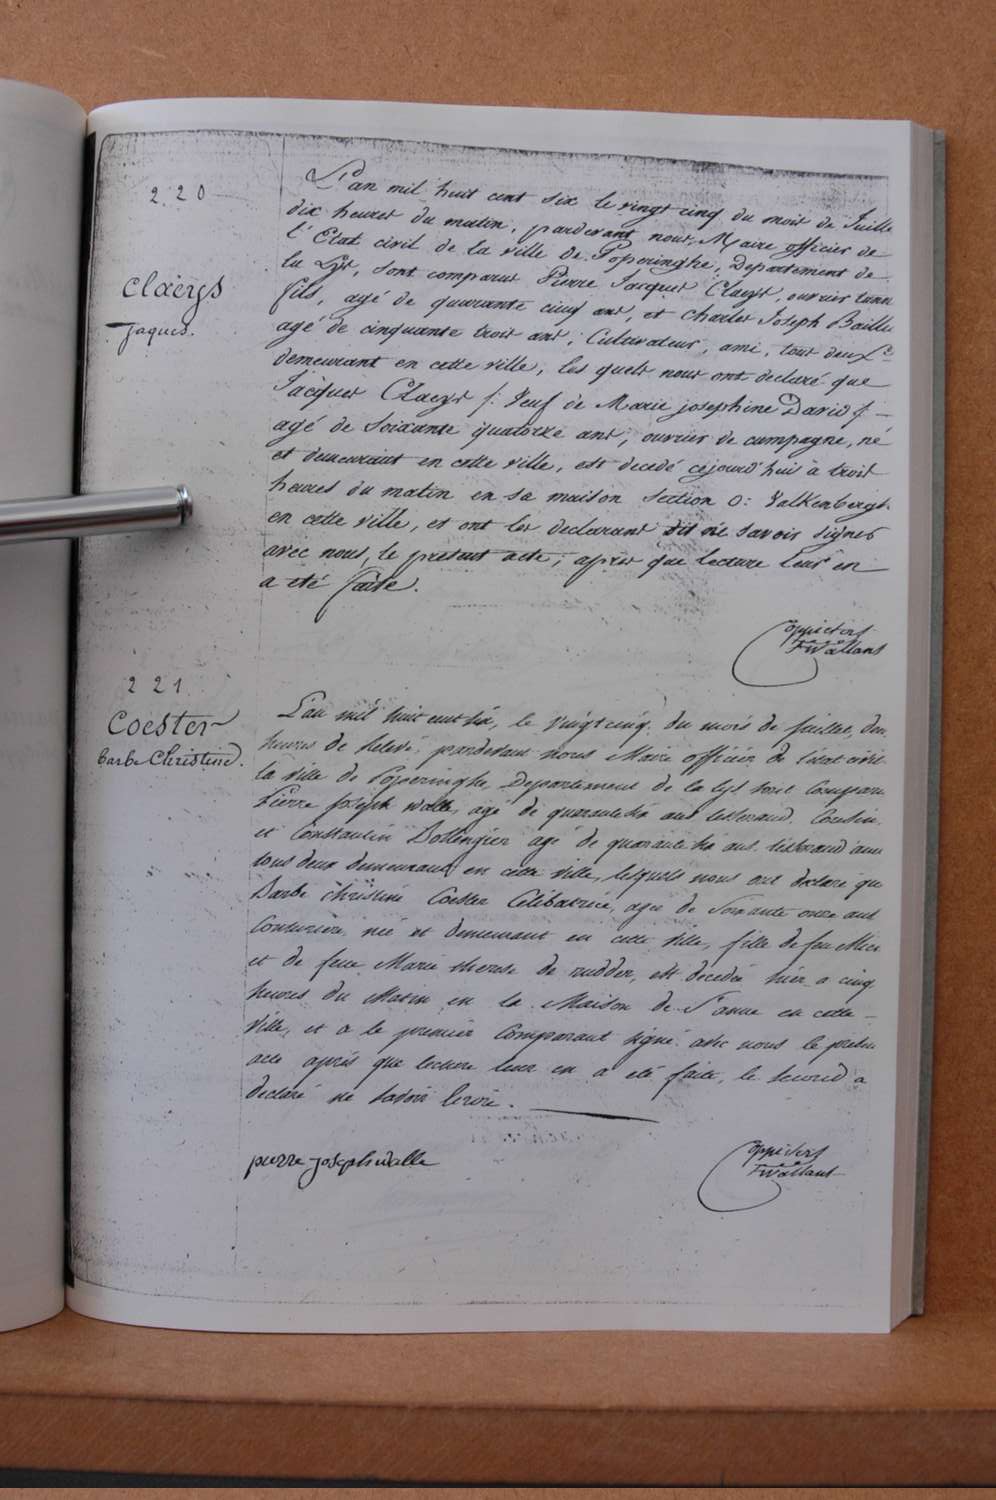 220
Claeÿs
Jaques.
L'an mil huit cent six le vingt cinq du mois de Juillet
dix heures du matin, pardevant nous, Maire officier de
l'Etat civil de la ville de Poperinghe, Departement de
la Lys, sont comparus Pierre Jacques Claeys, ouvrier
fils, agé de quarante cinq ans, et Charles Joseph Baillu
agé de cinquante trois ans, Cultivateur, ami, tous deux
demeurant en cette ville, les quels nous ont declaré que
Jacques Claeys /: Veuf de Marie josephine David /: —
agé de soixante quatorze ans, ouvrier de campagne, né
et demeurant en cette ville, est decedé cejourd'hui à trois
heures du matin en sa maison section O: Valkenbergst.
en cette ville, et ont les declarant dit ne savoir signer
avec nous, le present acte, après que lecture leur en
a eté faite.
Coppieters
T'Wallant
221
Coester
barbe Christine.
L'an mil huit cent six, le vingtcinq du mois de juillet, deux
heures de relevé, pardevant nous Maire officier de l'état civil
la ville de Poperinghe, Departement de la Lys sont Comparu
Pierre Joseph Walle, agé de quarante six ans tisserand, Cousin,
et Constantin agé de quarante six ans, tisserand ami
tous deux demeurant en cette ville, lesquels nous ont declaré que
Barbe Christine Coester Célibatrice, agée de Soixante onze ans
Couturière, née et demeurant en cette ville, fille de feu
et de feue Marie therese de rudder, est decedée hier a cinq
heures du Matin en la Maison de Ste anne en cette —
ville, et a le premier Comparant signé avec nous le present
acte après que lecture leur en a été faite, le second a
declaré ne savoir ecrire.
pierre joseph walle
Coppieters
T'Wallant